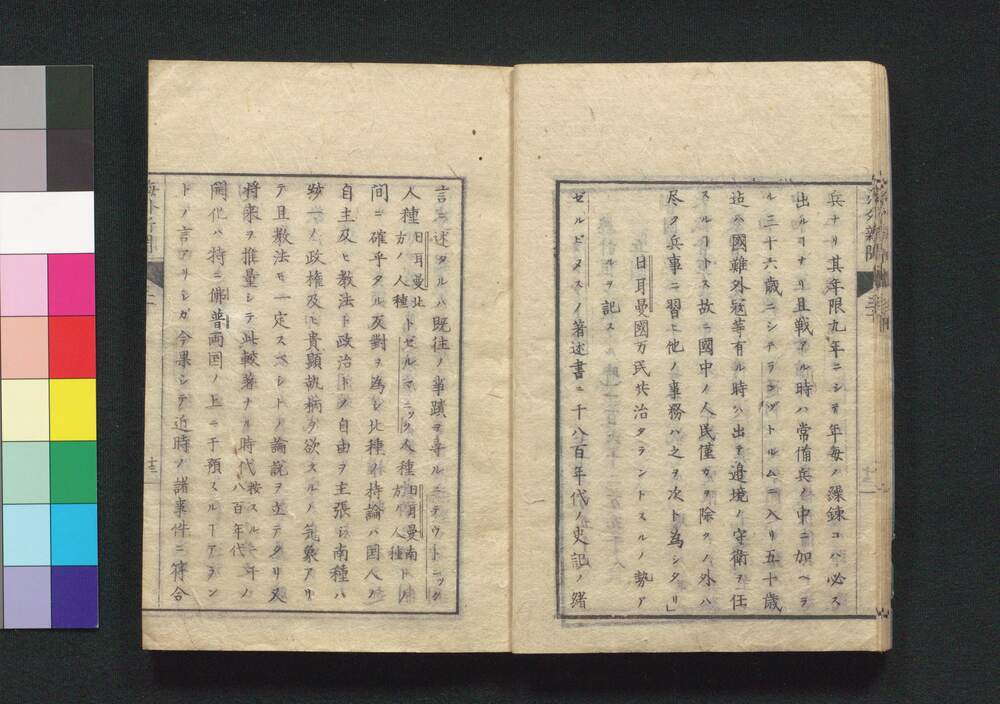 兵ナリ其年限九年ニシテ年毎ノ操錬コハ必ス
出ルヿナリ且戰アル時ハ常備兵ノ中ニ加ヘラ
ル三十六歳ニシテランヅトルムニ入リ五十歳
迄ハ國難外冦等有ル時ハ出テ邊境ノ守衛ヲ任
スルヿトス故ニ國中ノ人民僅カヲ除クノ外ハ
尽ク兵事ニ習ヒ他ノ事務ハ之ヲ次ト為シタリ」
日耳曼國万民共治タラントスルノ勢ア
ルヲ記ス
ゼルビヌスノ著述書ニ千八百年代ノ史記ノ緒
言ニ述タルハ既往ノ事蹟ヲ尋ルニテウトニック
人種日耳曼北方ノ人種トゼルマニック人種日耳曼南方人種トノ
間ニ確乎タル反對ヲ為シ北種ノ持論ハ国人ノ
自主及ヒ教法ト政治トノ自由ヲ主張シ南種ハ
跡一ノ政権及ヒ貴顕執柄ヲ欲スルノ気象アリ
テ且教法モ一定スベシトノ論説ヲ立テタリ又
将来ヲ推量シテ此較著ナル時代按スルニ千八百年代ノ
開化ハ特ニ佛普両国ノ上ニ干預スルヿアラン
トノ言アリシガ今果シテ近時ノ諸事件ニ符合
海外新聞